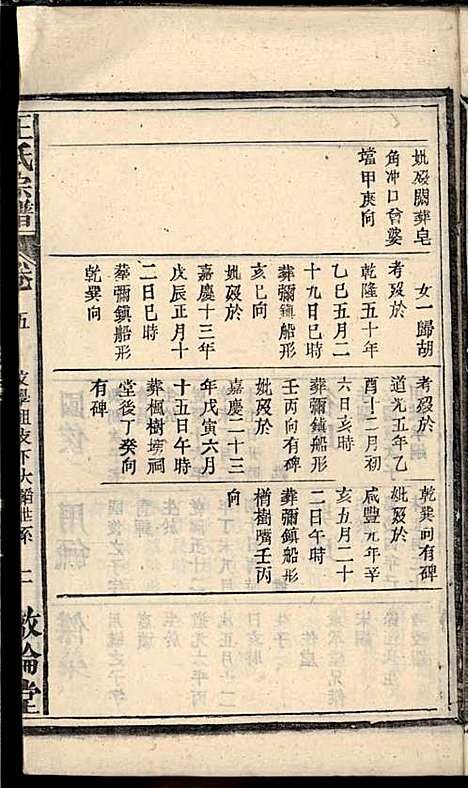 妣歿闕葬皂
角冲口曾婆
壋甲庚向
女一歸胡
考歿於
乾隆五十年
乙巳五月二
十九日巳時
葬彌鎮船形
亥巳向
妣歿於
嘉慶十三年
戊辰正月十
二日巳時
葬彌鎮船形
乾巽向
考歿於
道光五年乙
酉十二月初
六日亥時
葬彌鎮船形
壬丙向有碑
妣歿於
嘉慶二十三
年戊寅六月
十五日午時
葬楓樹塆祠
堂後丁癸向
有碑
乾巽向有碑
妣歿於
咸豐元年辛
亥五月二十
二日午時
葬彌鎮船形
楢樹嘴壬丙
向
王氏宗譜
五
世系
二
敦倫堂